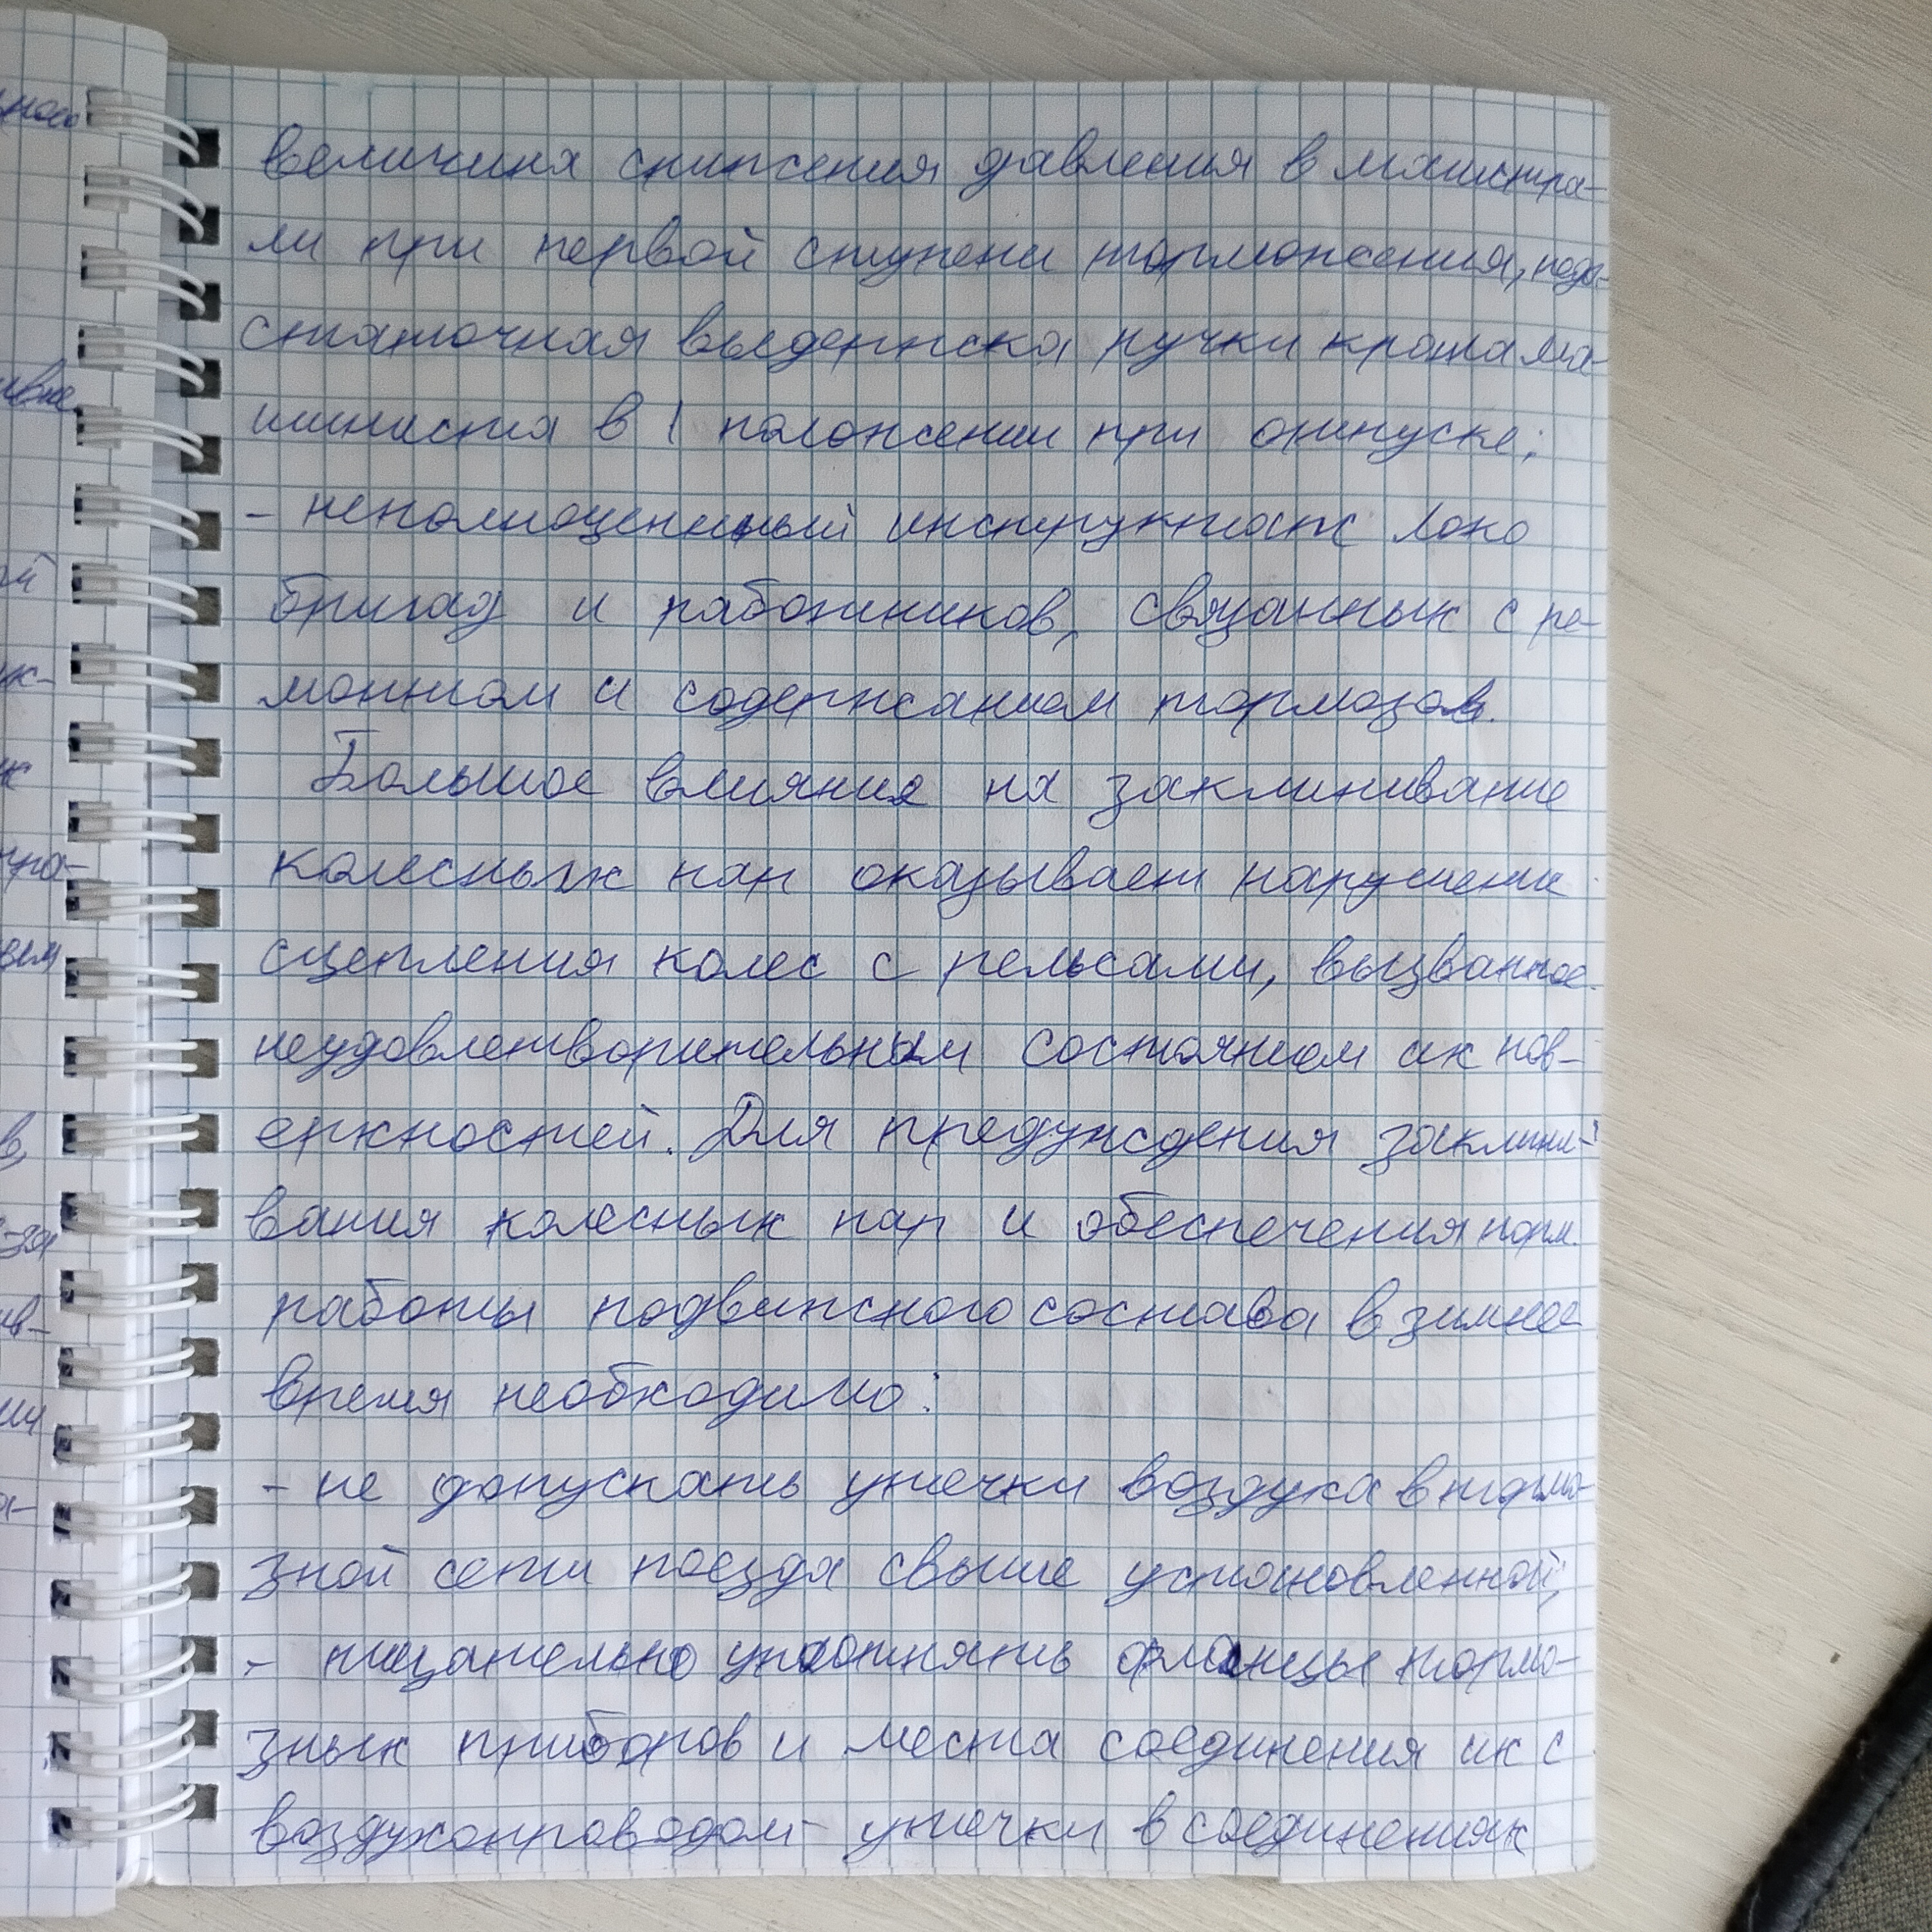 величина снижения давления в магистра-
ли при первой ступени торможения, недо-
статочная выдержка ручки крана ма-
шиниста в 1 положении при отпуске;
- неполноценный инструктаж локо
бригад и работников, связанных с ре-
монтом и содержанием тормозов.
Большое влияние на заклинивание
колесных пар оказывает нарушение
сцепления колес с рельсами, вызванное
неудовлетворительным состоянием их пов-
ерхностей. Для предуждения заклини-
вания колесных пар и обеспечения норм.
работы подвижного состава в зимнее
время необходимо:
- не допускать утечки воздуха в тормо-
зной сети поезда свыше установленной;
- тщательно уплотнять фланцы тормо-
зных приборов и места соединения их с
воздухопроводом - утечки в соединениях